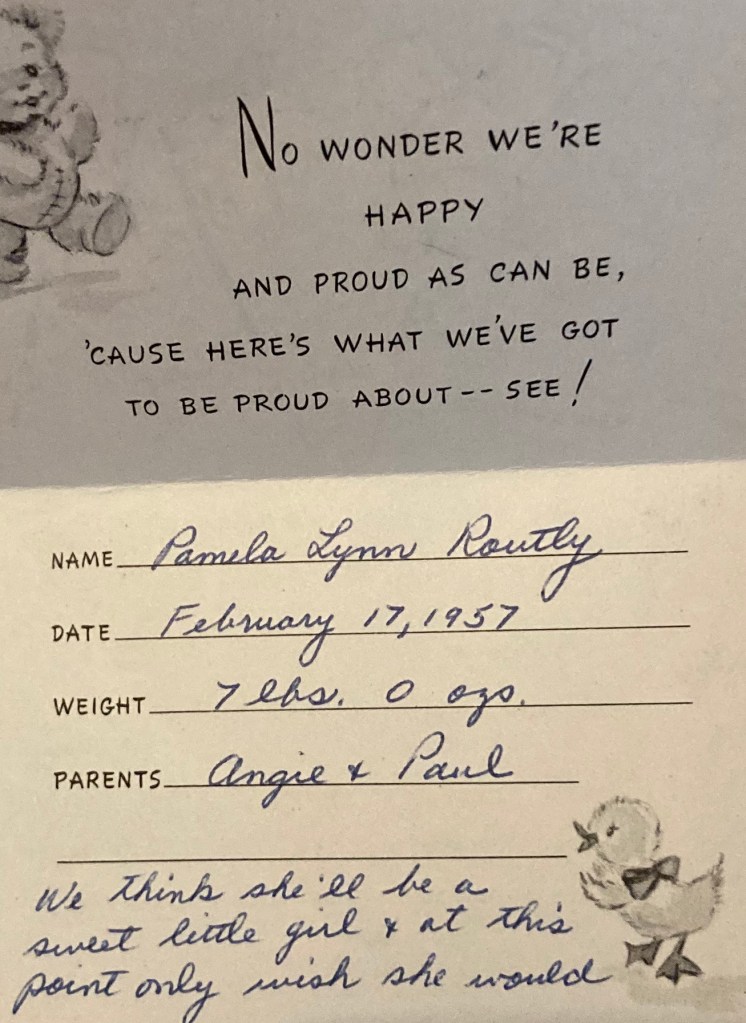 No WONDER WE'RE
HAPPY
AND PROUD AS CAN BE,
'CAUSE HERE'S WHAT WE'VE GOT
TO BE PROUD ABOUT -- SEE!
NAME Pamela Lynn Routly
DATE February 17, 1957
WEIGHT 7 lbs. 0 ozs.
PARENTS Angie & Paul
We think she'll be a
sweet little girl & at this
point only wish she would